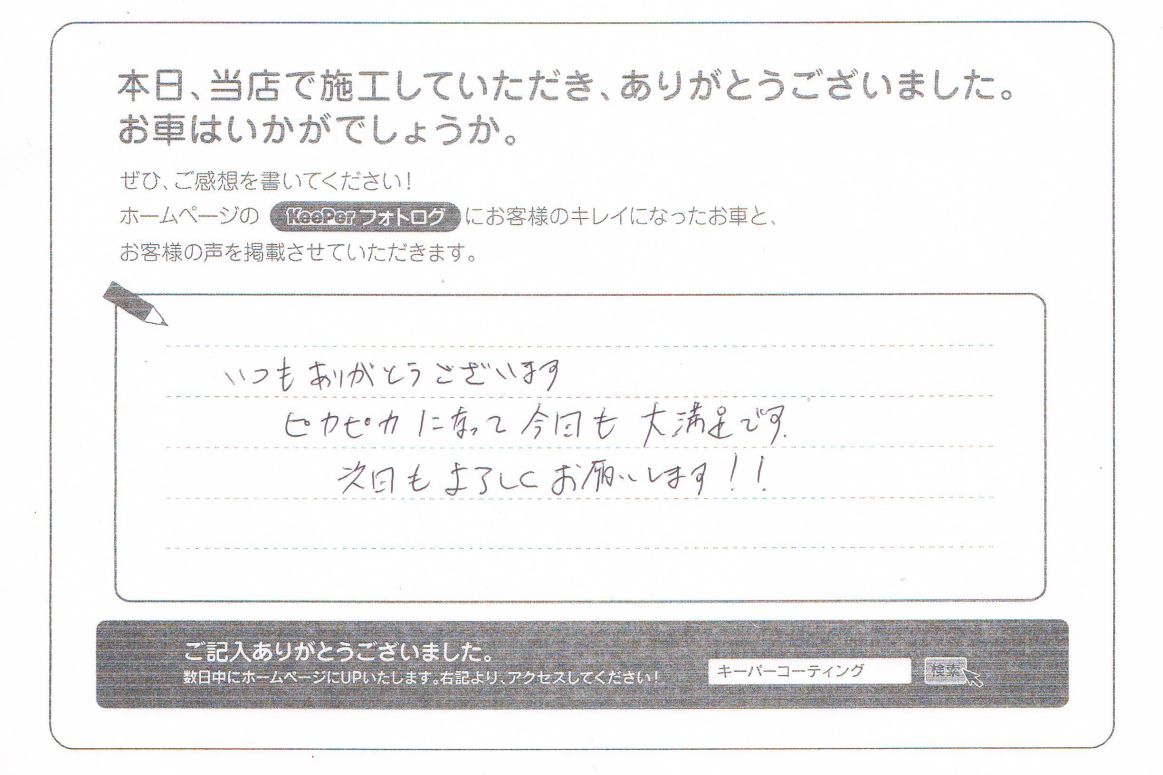 本日、当店で施工していただき、ありがとうございました。
お車はいかがでしょうか。
ぜひ、ご感想を書いてください！
ホームページの KeePer フォトログ にお客様のキレイになったお車と、
お客様の声を掲載させていただきます。
いつもありがとうございます
ピカピカになって今回も大満足です。
次回もよろしくお願いします!!
ご記入ありがとうございました。
数日中にホームページにUPいたします。右記より、アクセスしてください！
キーパーコーティング 検索